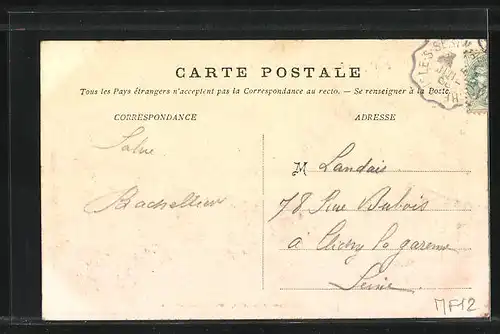 CARTE POSTALE
Tous les Pays étrangers n'acceptent pas la Correspondance au recto. — Se renseigner à la Poste
CORRESPONDANCE
ADRESSE
Salue
Bachellier
M Landais
78 Rue Dubois
à Clichy la garenne
Seine
MF12